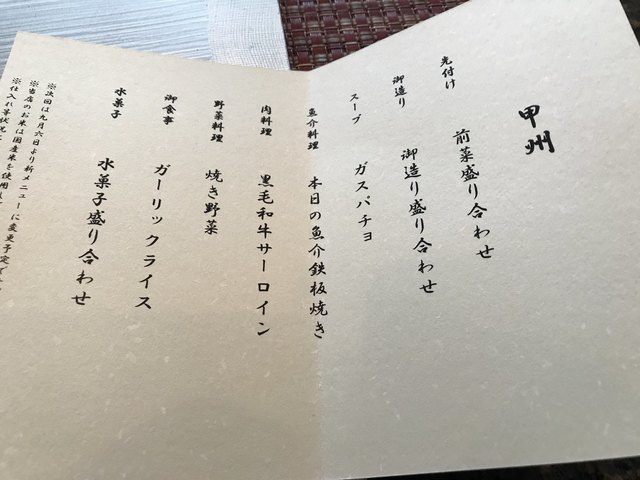 甲州
先付け 前菜盛り合わせ
御造り 御造り盛り合わせ
スープ ガスパチョ
魚介料理 本日の魚介鉄板焼き
肉料理 黒毛和牛サーロイン
野菜料理 焼き野菜
御食事 ガーリックライス
水菓子 水菓子盛り合わせ
※次回は九月六日より新メニューに変更予定で
※当店のお米は国産米を使用
※仕入れ等状況